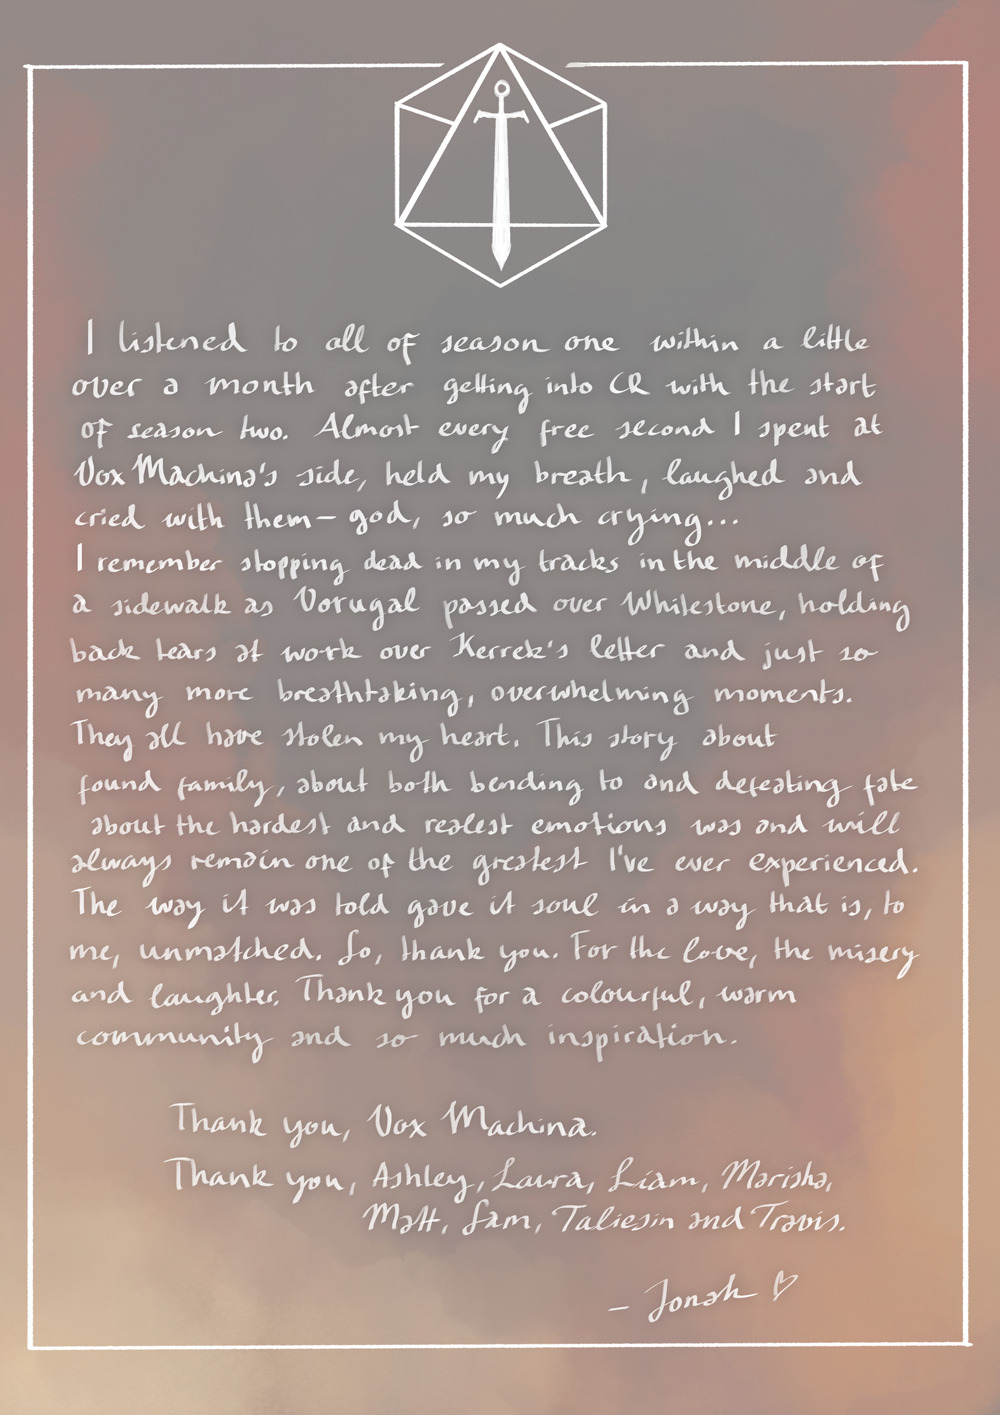 I listened to all of season one within a little
over a month after getting into CR with the start
of season two. Almost every free second I spent at
Vox Machina's side, held my breath, laughed and
cried with them – god, so much crying...
I remember stopping dead in my tracks in the middle of
a sidewalk as Vorugal passed over Whitestone, holding
back tears at work over Kerrek's letter and just so
many more breathtaking, overwhelming moments.
They all have stolen my heart. This story about
found family, about both bending to and defeating fate
about the hardest and realest emotions was and will
always remain one of the greatest I've ever experienced.
The way it was told gave it soul in a way that is, to
me, unmatched. So, thank you. For the love, the misery
and laughter. Thank you for a colourful, warm
community and so much inspiration.
Thank you, Vox Machina.
Thank you, Ashley, Laura, Liam, Marisha,
Matt, Sam, Taliesin and Travis.
– Jonah ♡